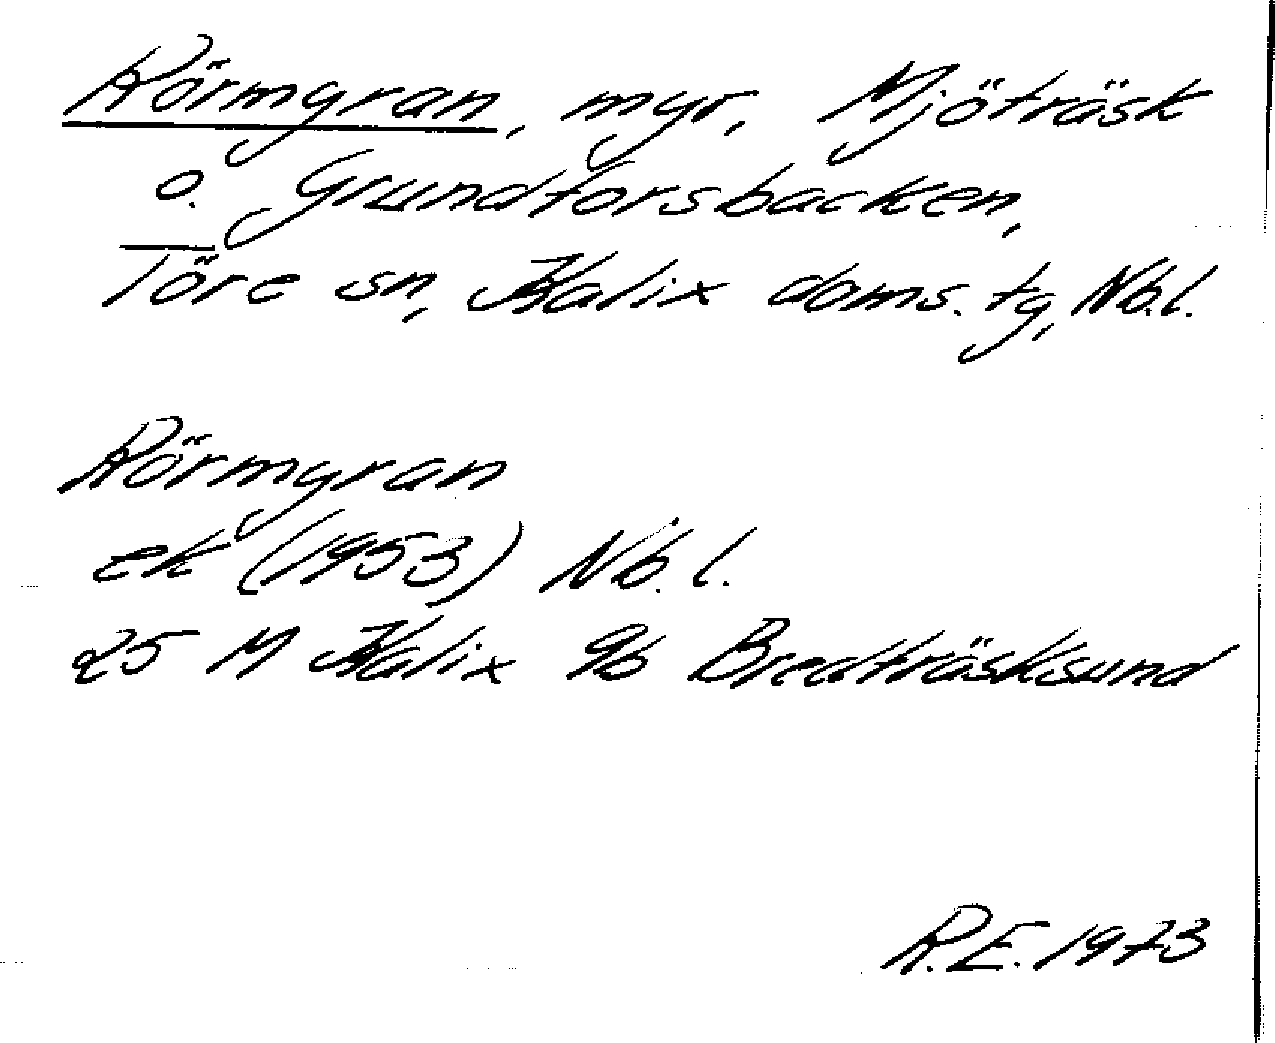 Rörmyran, myr, Mjöträsk
o. Grundforsbacken,
Töre sn, Kalix doms. tg, Nb.l.
Rörmyran
ek (1953) Nb. l.
25 M Kalix 9b Bredträsksund
R.E. 1973